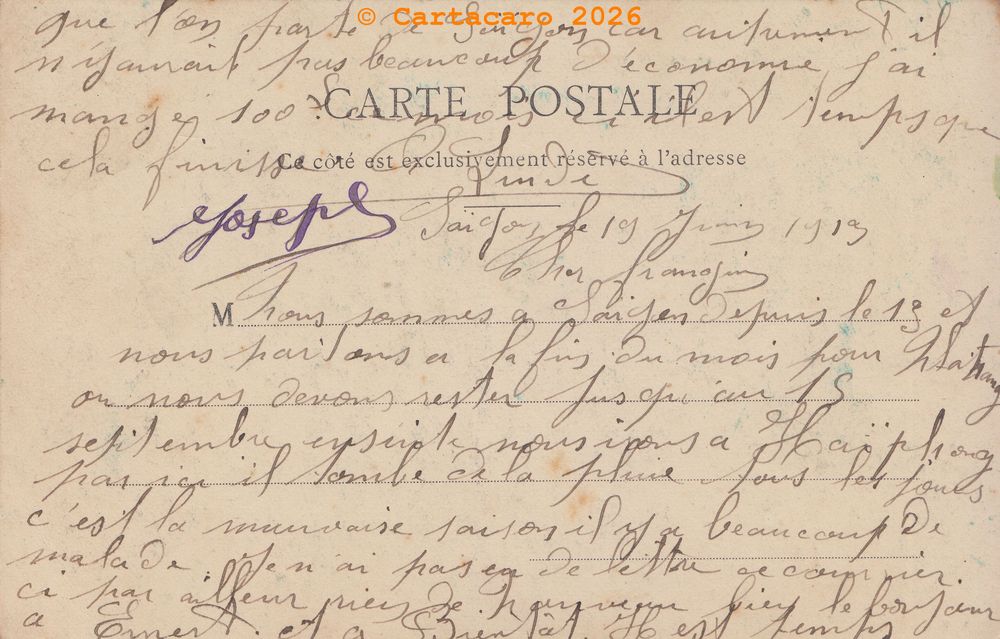 © Cartacaro 2026
que l'on parte de Saigon car autrement il
n'y aurait pas beaucoup d'économie, j'ai
mangé 100 
CARTE POSTALE
mois il est temps que
cela finisse
Ce côté est exclusivement réservé à l'adresse
Joseph
Saigon le 19 Juin 1919
Cher frangin
M nous sommes a Saigon depuis le 13 et
nous partons a la fin du mois pour
ou nous devons rester jusqu'au 15
septembre ensuite nous irons a Haïphong
par ici il tombe de la pluie tous les jours
c'est la mauvaise saison il y a beaucoup de
malade. Je n'ai pas eu de lettre ce courrier
ci par ailleur rien de nouveau bien le bonjour
a et a Bientôt Il est temps